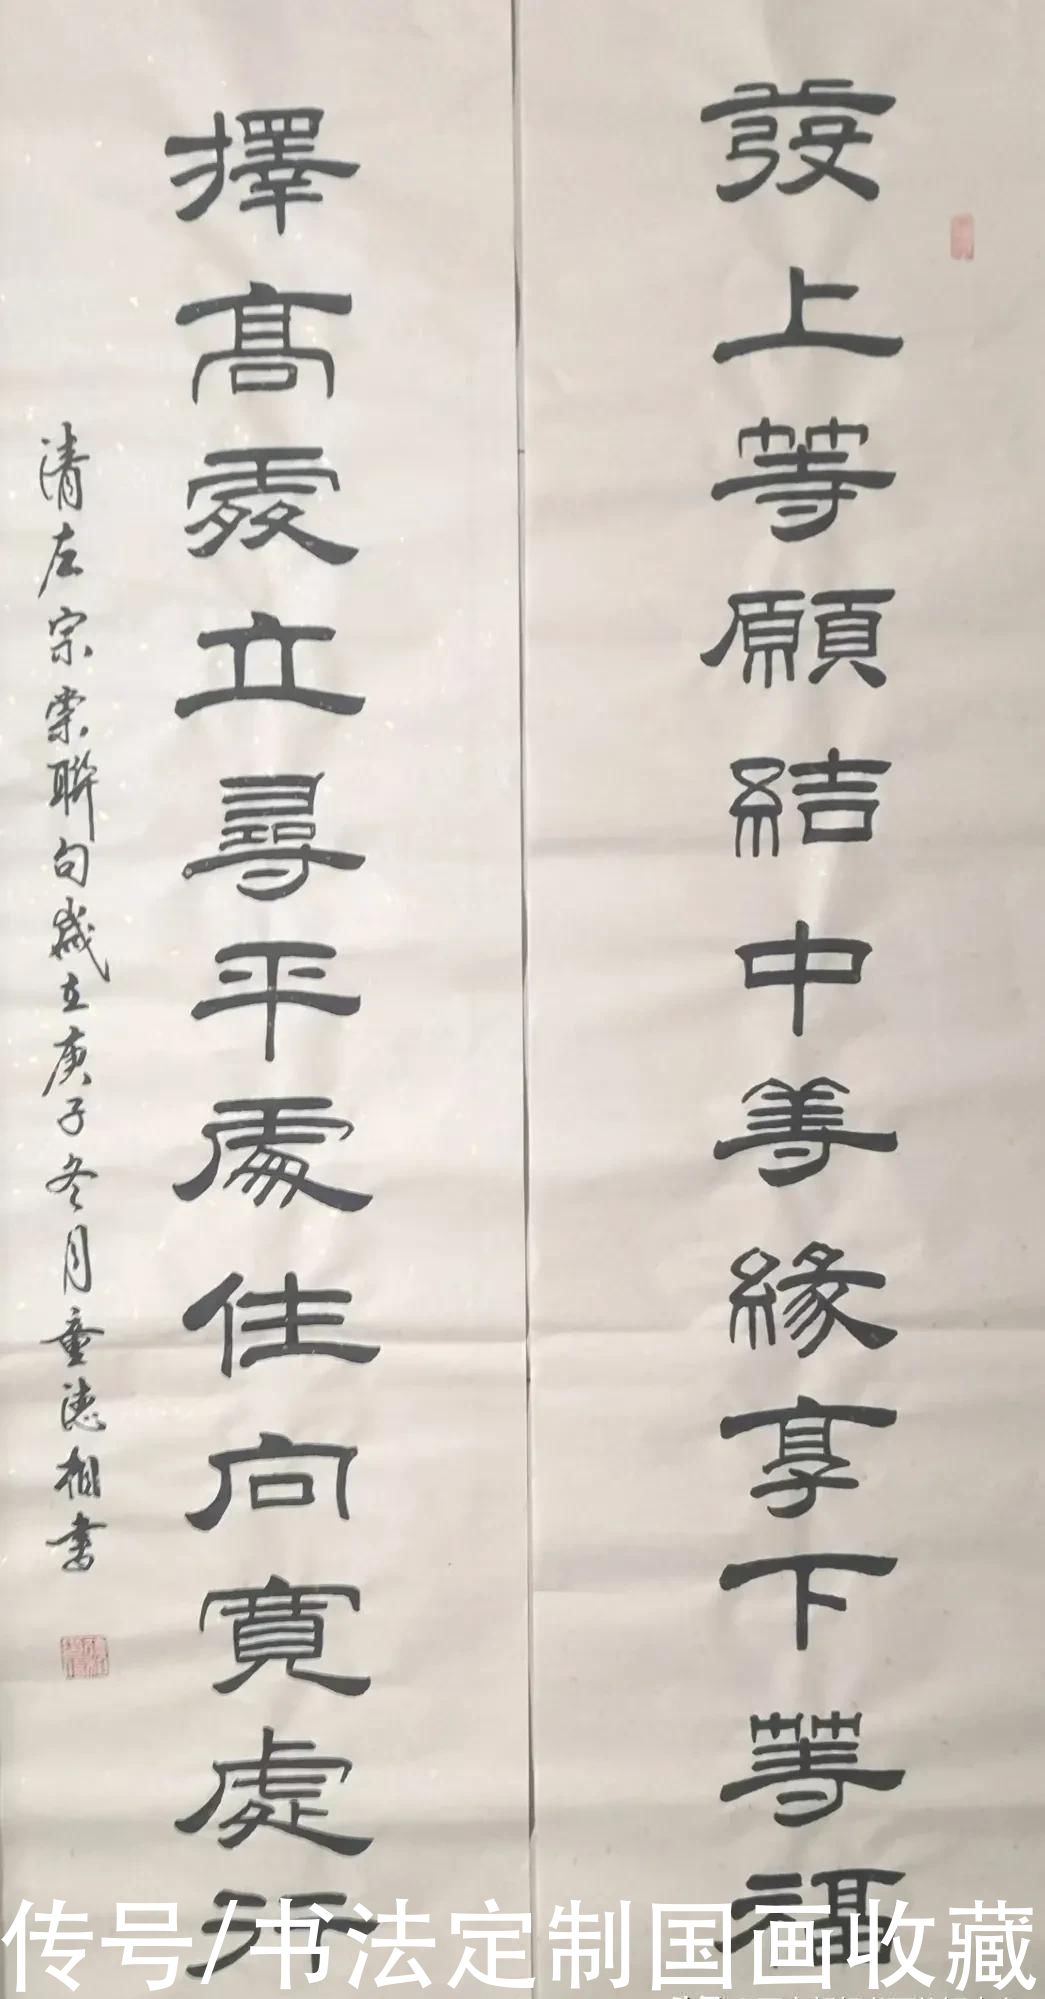 發上等願結中等緣享下等福
擇高處立尋平處住向寬處行
清左宗棠聯句歲在庚子冬月童德相書
传号/书法定制国画收藏